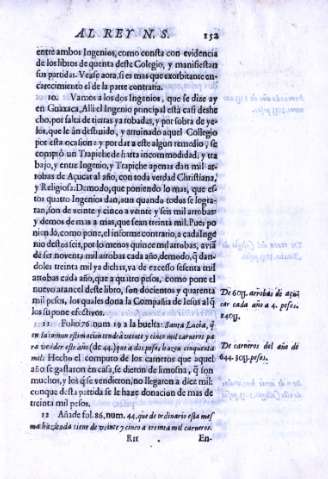 AL REY N. S. 152
entre ambos Ingenios, como consta con evidencia
de los libros de quenta deste Colegio, y manifiestan
sin partidas. Vease aora, si es mas que exorbitante en-
carecimiento el de la parte contraria.
10. Vamos a los dos Ingenios, que se dize ay
en Guaxaca, Alli el Ingenio principal està casi deshe
cho, por falta de tierras arrobadas, y por sobra de
los, que le àn destruido, y arruinado aquel Collegio
por esta ocasion: y por dar a este algun remedio, se
comprò un Trapiche de harta incommodidad, y tra
bajo, y entre Ingenio, y Trapiche apenas dan mil ar-
robas de Açucar al año, con toda verdad Christiana,
y Religiosa. De modo, que poniendo lo mas, que es-
tos quatro Ingenios dan, aun quando todos se logra-
ran, son de veinte y cinco a veinte y seis mil arrobas
y demos de mas a mas, que sean treinta mil. Pues po
niendo, como pone, el informe contrario, a cada Inge
nio destos seis, por lo menos quince mil arrobas, avia
de ser noventa mil arrobas cada año, demodo, q̃ dan-
doles treinta mil ya dichas, và de excesso sesenta mil
arrobas cada año, que a quatro pesos, como pone el
nuevo arancel deste libro, son docientos y quarenta
mil pesos, los quales dona la Compañia de Jesus al q̃
los supone efectivos.
De 60U. arrobas de açu
car cada año a 4. pesos.
240U.
11 Folio 76. num 19 a la buelta: Santa Lucia, q̃
en la comun estimacion tendrà treinta y cinco mil carneros pa
ra vender este año (de 44) que a dos pesos, hazen cinquenta
mil: Hecho el computo de los carneros que aquel
año se gastaron en casa, se dieron de limosna, q̃ son
muchos, y los q̃ se vendieron, no llegaron a diez mil:
conque desta partida se le haze donacion de mas de
treinta mil pesos.
De carneros del año de
644. 30U. pesos.
12 Añade fol. 86, num. 44. que de ordinario esta mes
ma hazienda tiene de veinte y cinco a treinta mil carneros.
Rr2 En-